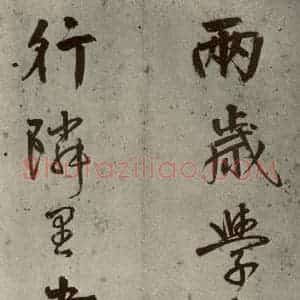 兩歲學
行隣里
Shufaziliao.COM